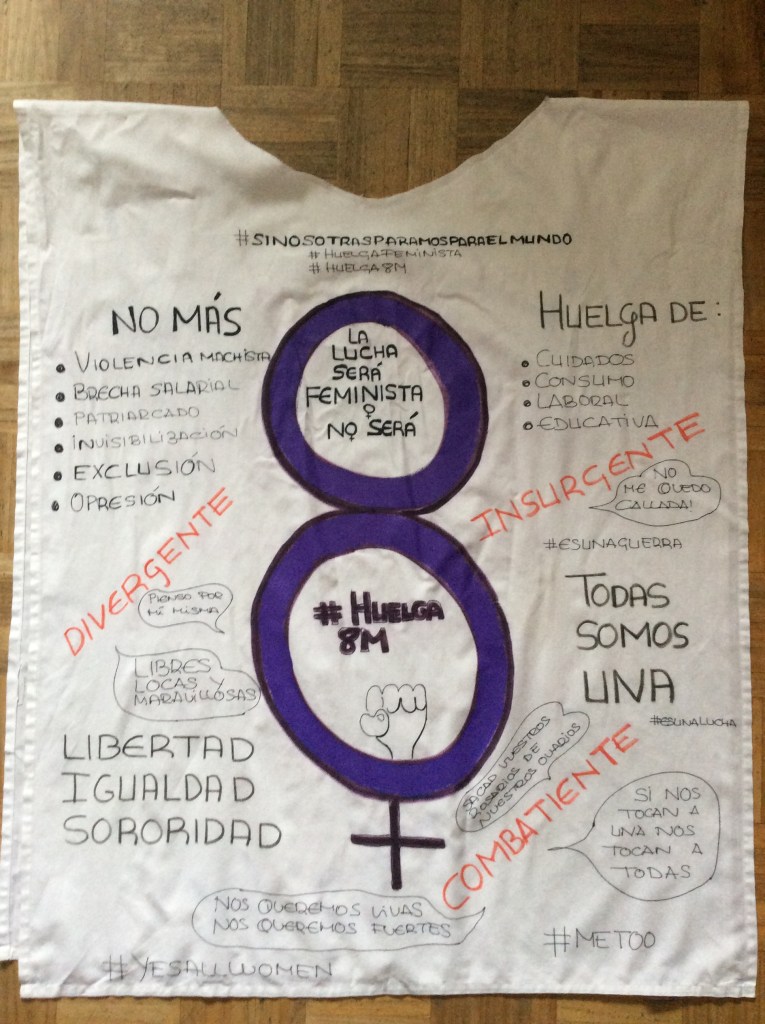 #SINOSOTRASPARAMOSPARAELMUNDO
#HUELGAFEMINISTA
#HUELGA8M
NO MÁS
• VIOLENCIA MACHISTA
• BRECHA SALARIAL
• PATRIARCADO
• INVISIBILIZACIÓN
• EXCLUSIÓN
• OPRESIÓN
LA
LUCHA
SERÁ
FEMINISTA
O
NO SERÁ
HUELGA DE:
• CUIDADOS
• CONSUMO
• LABORAL
• EDUCATIVA
DIVERGENTE
INSURGENTE
NO
ME QUEDO
CALLADA!
#ESUNAGUERRA
PIENSO POR
MÍ MISMA
LIBRES
LOCAS Y
MARAVILLOSAS
# HUELGA
8M
TODAS
SOMOS
UNA
#ESUNALUCHA
LIBERTAD
IGUALDAD
SORORIDAD
SACAD VUESTROS
ROSARIOS DE
NUESTROS OVARIOS
COMBATIENTE
SI NOS
TOCAN A
UNA NOS
TOCAN A
TODAS
NOS QUEREMOS VIVAS
NOS QUEREMOS FUERTES
#METOO
#YESALLWOMEN